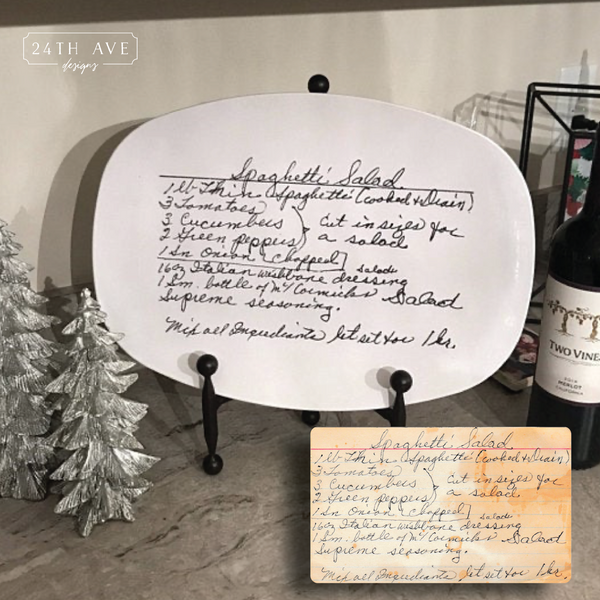 24TH AVE
designs
Spaghetti Salad
1 lb Thin Spaghetti (cooked & Drain)
3 Tomatoes
3 Cucumbers
2 Green peppers
Cut in sizes for
a salad
1 Sm Onion [chopped]
16oz Italian wishbone salade dressing
1 Sm. bottle of Mc Cormicks Salad
Supreme seasoning.
Mix all Ingredients let set for 1 hr.
TWO VINES
MERLOT
CALIFORNIA
Spaghetti Salad
1 lb Thin Spaghetti (cooked & Drain)
3 Tomatoes
3 Cucumbers
2 Green peppers
Cut in sizes for
a salad
1 Sm Onion [chopped]
16oz Italian wishbone salade dressing
1 Sm. bottle of Mc Cormicks Salad
Supreme seasoning.
Mix all Ingredients let set for 1 hr.